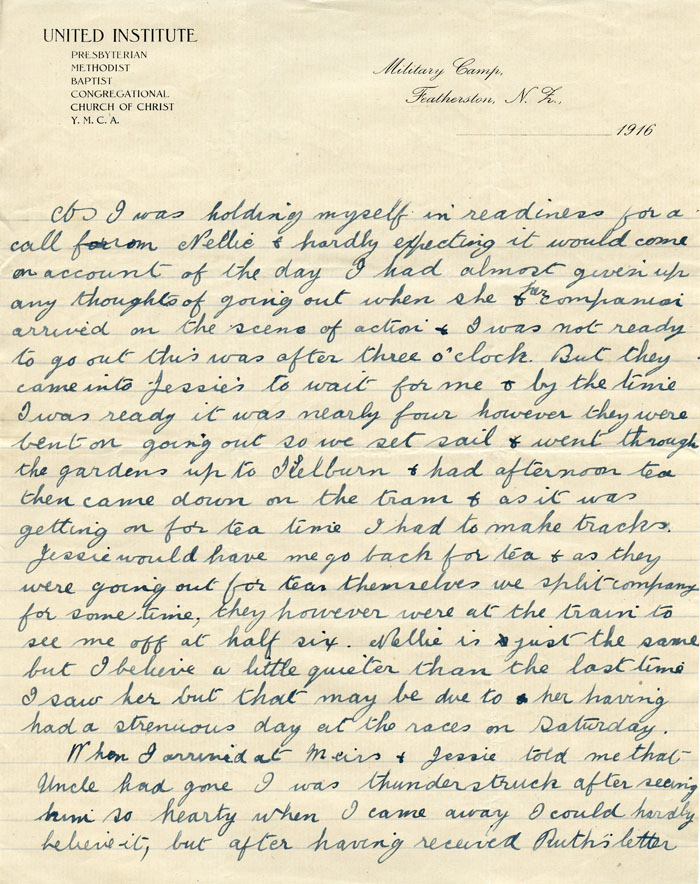 UNITED INSTITUTE
PRESBYTERIAN
METHODIST
BAPTIST
CONGREGATIONAL
CHURCH OF CHRIST
Y. M. C. A.
Military Camp,
Featherston, N. Z.,
1916
As I was holding myself in readiness for a
call from Nellie & hardly expecting it would come
on account of the day I had almost given up
any thoughts of going out when she & her companion
arrived on the scene of action & I was not ready
to go out this was after three o'clock. But they
came into Jessie's to wait for me & by the time
I was ready it was nearly four however they were
bent on going out so we set sail & went through
the gardens up to Kelburn & had afternoon tea
then came down on the tram & as it was
getting on for tea time I had to make tracks.
Jessie would have me go back for tea & as they
were going out for tea themselves we split company
for some time, they however were at the train to
see me off at half six. Nellie is just the same
but I believe a little quieter than the last time
I saw her but that may be due to her having
had a strenuous day at the races on Saturday.
When I arrived at Meirs & Jessie told me that
Uncle had gone I was thunderstruck after seeing
him so hearty when I came away I could hardly
believe it, but after having received Ruth's letter